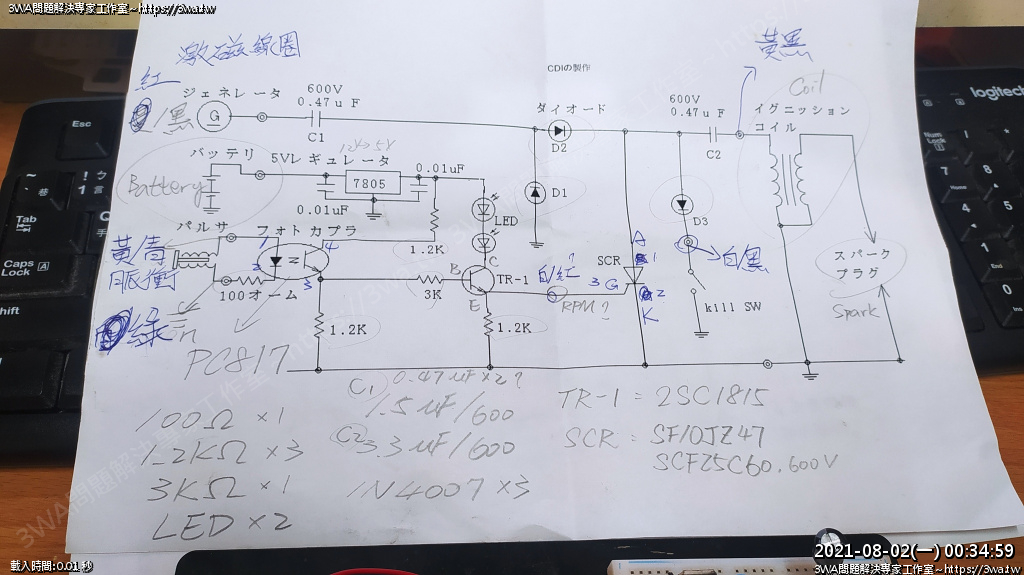 3WA問題解決專家工作室~https://3wa.tw
激磁線圈
黃黑
CDIの製作
紅
ジェネレータ
600V
0.47uF
C1
ダイオード
D2
600V
0.47uF
C2
Coil
イグニッション
コイル
/黑
G
バッテリ
5Vレギュレータ
12V→5V
0.01uF
7805
0.01uF
Battery
LED
D1
D3
パルサ
フォトカプラ
1
4
2
3
1.2K
黃青
脈衝
100オーム
3K
B
C
E
TR-1
白/紅?
RPM?
SCR
A
1
3G
2
K
白黑
kill SW
スパーク
プラグ
Spark
綠
1.2K
1.2K
PC817
C1 0.47uF×2?
1.5uF/600
C2 3.3uF/600
1N4007×3
100Ω×1
1.2KΩ×3
3KΩ×1
LED×2
TR-1=2SC1815
SCR:SF10JZ47
SCF25C60.600V
Esc
Tab
Caps
Lock
A
hift
logitech
Num
Lock
7
Home
4
1
End
0
Ins
載入時間:0.01 秒
2021-08-02(一) 00:34:59
3WA問題解決專家工作室~https://3wa.tw